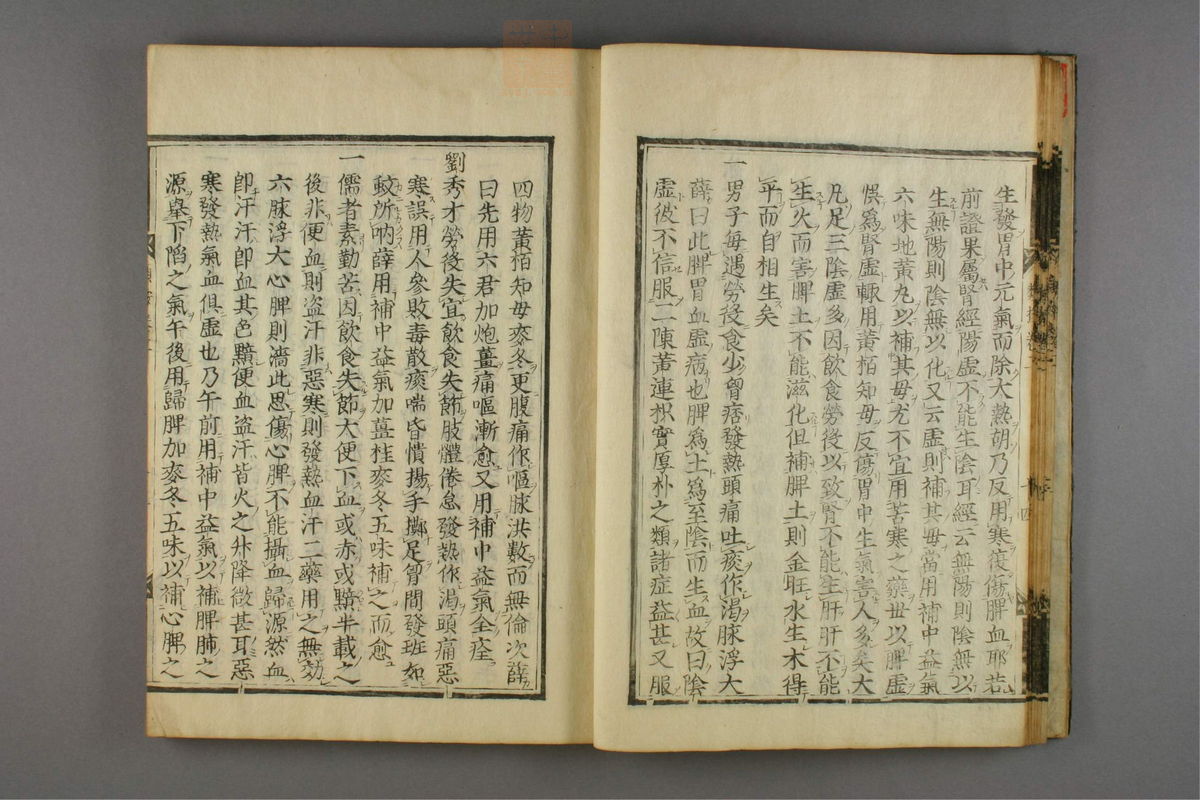 生發胃中元氣而除大熱胡乃反用寒復傷脾血耶若
前證果屬腎經陽虛不能生陰耳經云無陽則陰無以
生無陽則陰無以化又云虛則補其母當用補中益氣
六味地黃丸以補其母尤不宜用苦寒之藥世以脾虛
悞爲腎虛輙用黃栢知母反傷胃中生氣害人多矣大
凡足三陰虛多因飲食勞役以致腎不能生肝肝不能
生火而害脾土不能滋化但補脾土則金旺水生木得
平而自相生矣
一男子每遇勞役食少胷痞發熱頭痛吐痰作渴脉浮大
薛曰此脾胃血虛病也脾爲土爲至陰而生血故曰陰
虛彼不信服二陳黃連枳實厚朴之類諸症益甚又服
四物黃栢知母麥冬更腹痛作嘔脉洪數而無倫次薛
曰先用六君加炮薑痛嘔漸愈又用補中益氣全痊
劉秀才勞役失宜飲食失節肢體倦怠發熱作渴頭痛惡
寒誤用人參敗毒散痰喘昏憒揚手擲足胷間發班如
蚊所吶薛用補中益氣加薑桂麥冬五味補之而愈
一儒者素勤苦因飲食失節大便下血或赤或黯半載之
後非便血則盜汗非惡寒則發熱血汗二藥用之無効
六脉浮大心脾則濇此思傷心脾不能攝血歸源然血
卽汗汗卽血其色黯便血盜汗皆火之升降微甚耳惡
寒發熱氣血俱虛也乃午前用補中益氣以補脾肺之
源舉下陷之氣午後用歸脾加麥冬五味以補心脾之